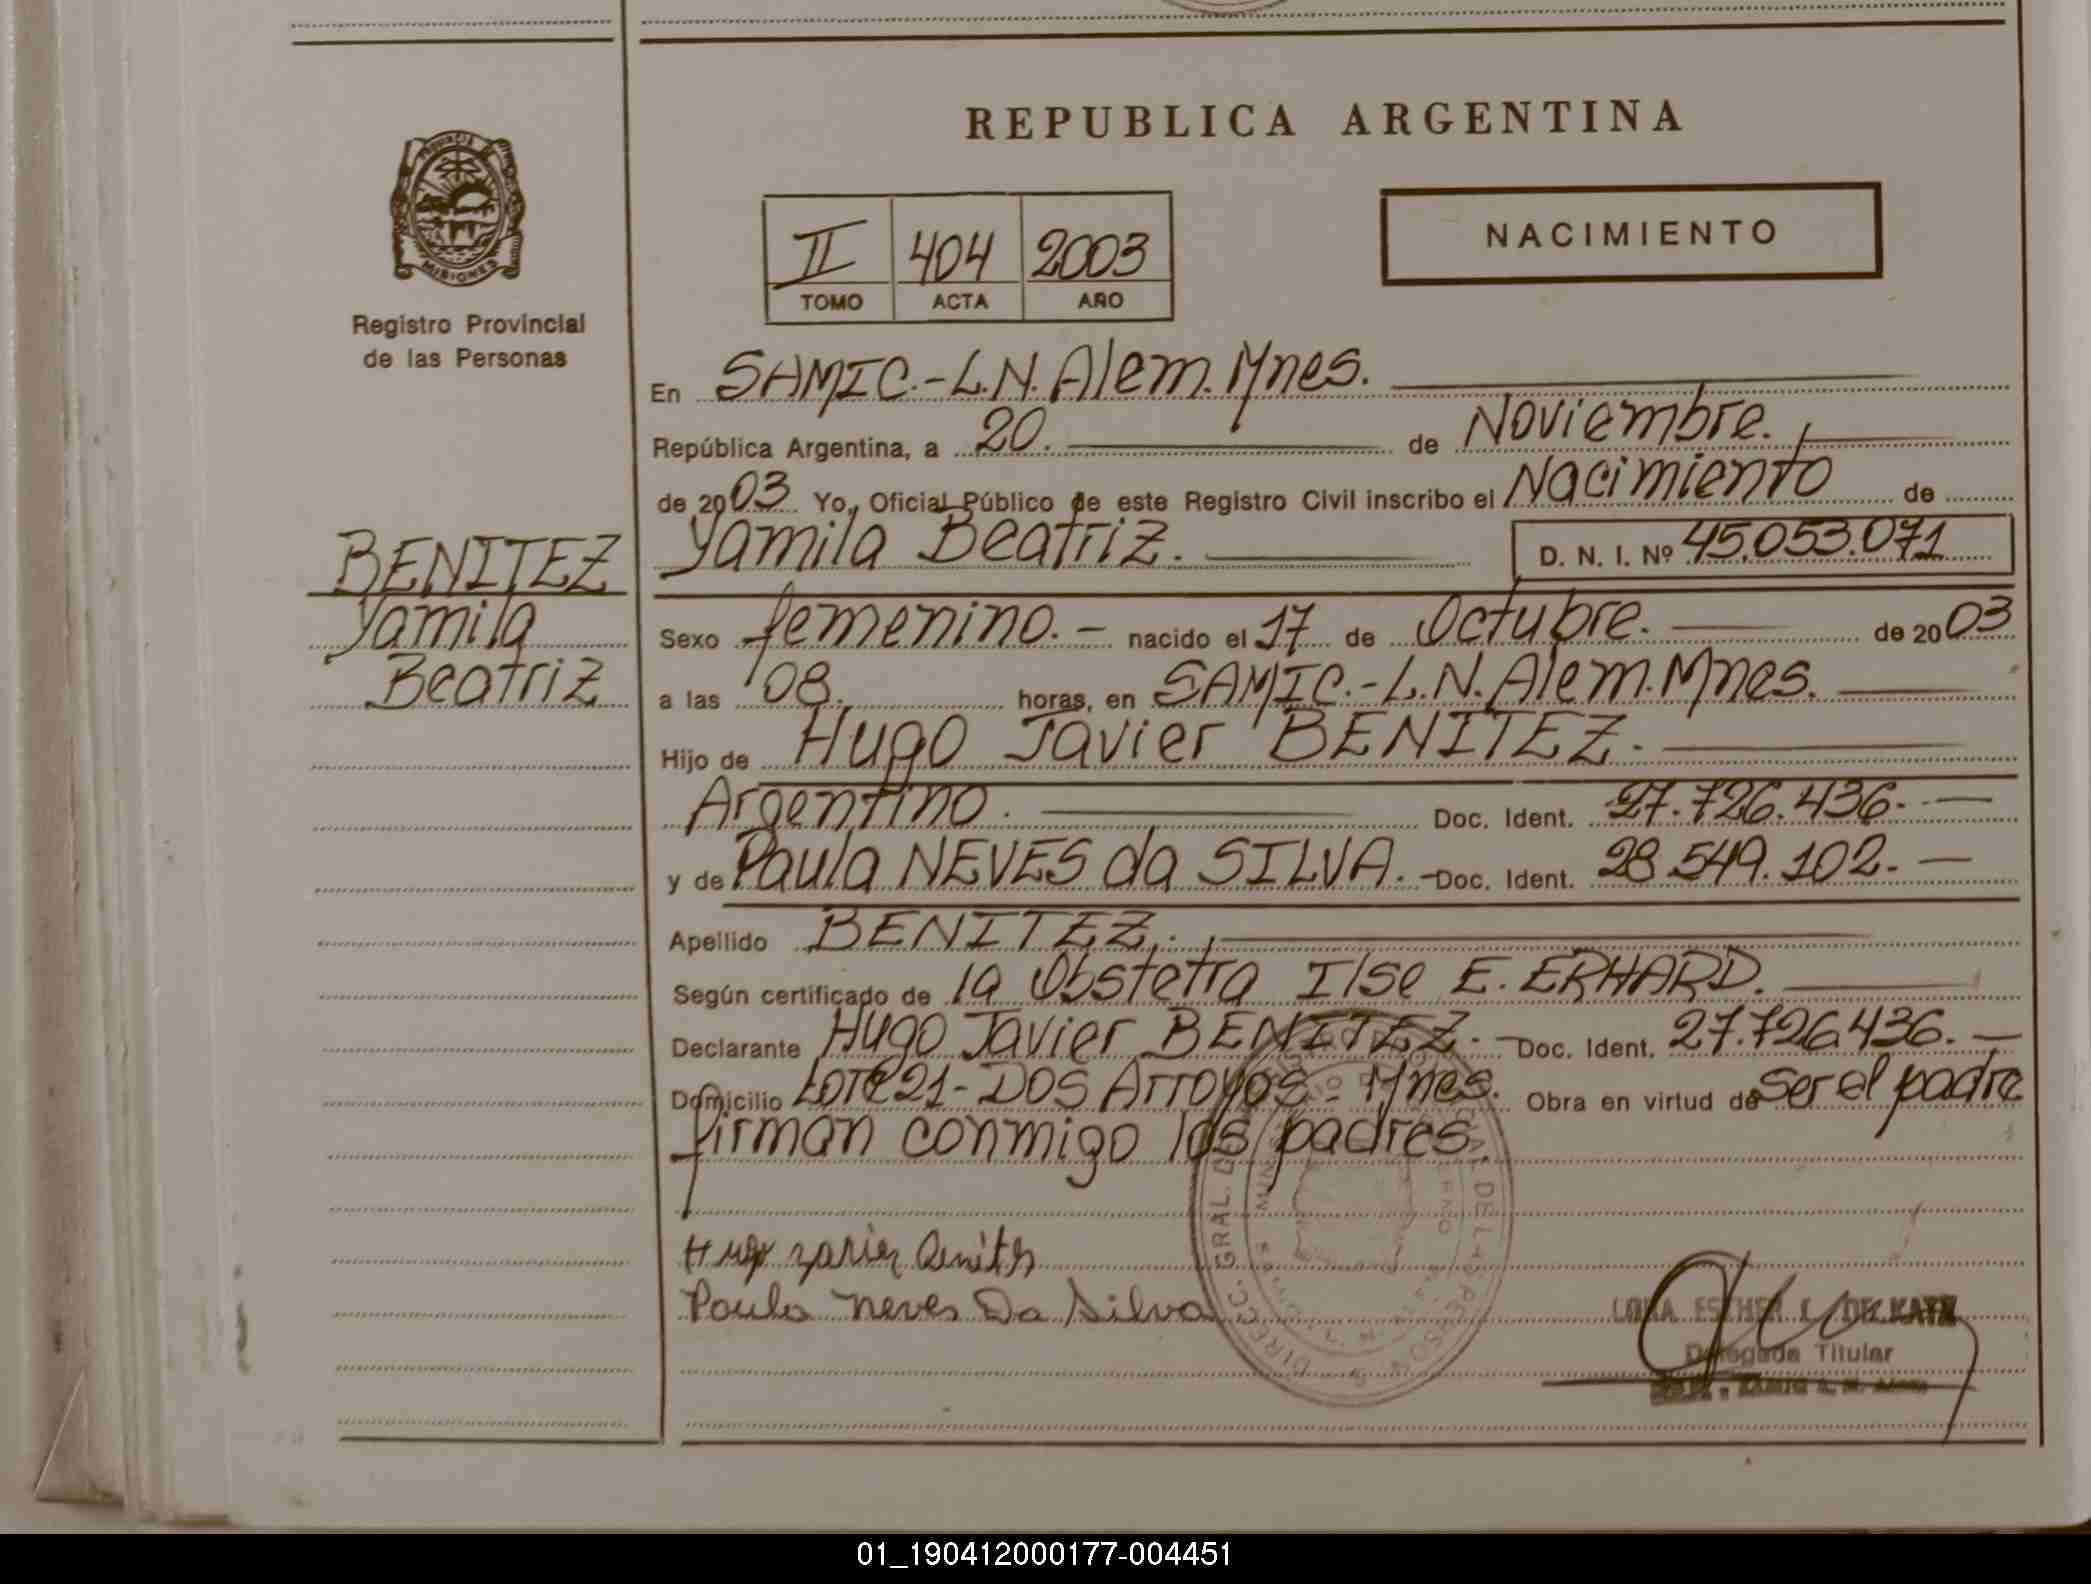 REPUBLICA ARGENTINA
PROVINCIA DE
MISIONES
Registro Provincial
de las Personas
II 404 2003
TOMO ACTA AÑO
NACIMIENTO
En SAMIC.-L.N.Alem.Mnes.
República Argentina, a 20. de Noviembre.
de 2003 Yo, Oficial Público de este Registro Civil inscribo el Nacimiento de
Yamila Beatriz. D. N. I. Nº 45.053.071
BENITEZ
Yamila
Beatriz
Sexo femenino.- nacido el 17 de Octubre. de 2003
a las 08. horas, en SAMIC.-L.N.Alem.Mnes.
Hijo de Hugo Javier BENITEZ.
Argentino. Doc. Ident. 27.726.436.-
y de Paula NEVES da SILVA.- Doc. Ident. 28.549.102.-
Apellido BENITEZ.
Según certificado de la Obstetra Ilse E. ERHARD.
Declarante Hugo Javier BENITEZ.- Doc. Ident. 27.726.436.-
Domicilio Lote 21-DOS Arroyos-Mnes. Obra en virtud de ser el padre
firman conmigo los padres.
Hugo Benites
Paula Neves Da Silva
DIRECC. GRAL. DE LAS PERSONAS
ESTHER DE KATZ
Delegada Titular
01_190412000177-004451